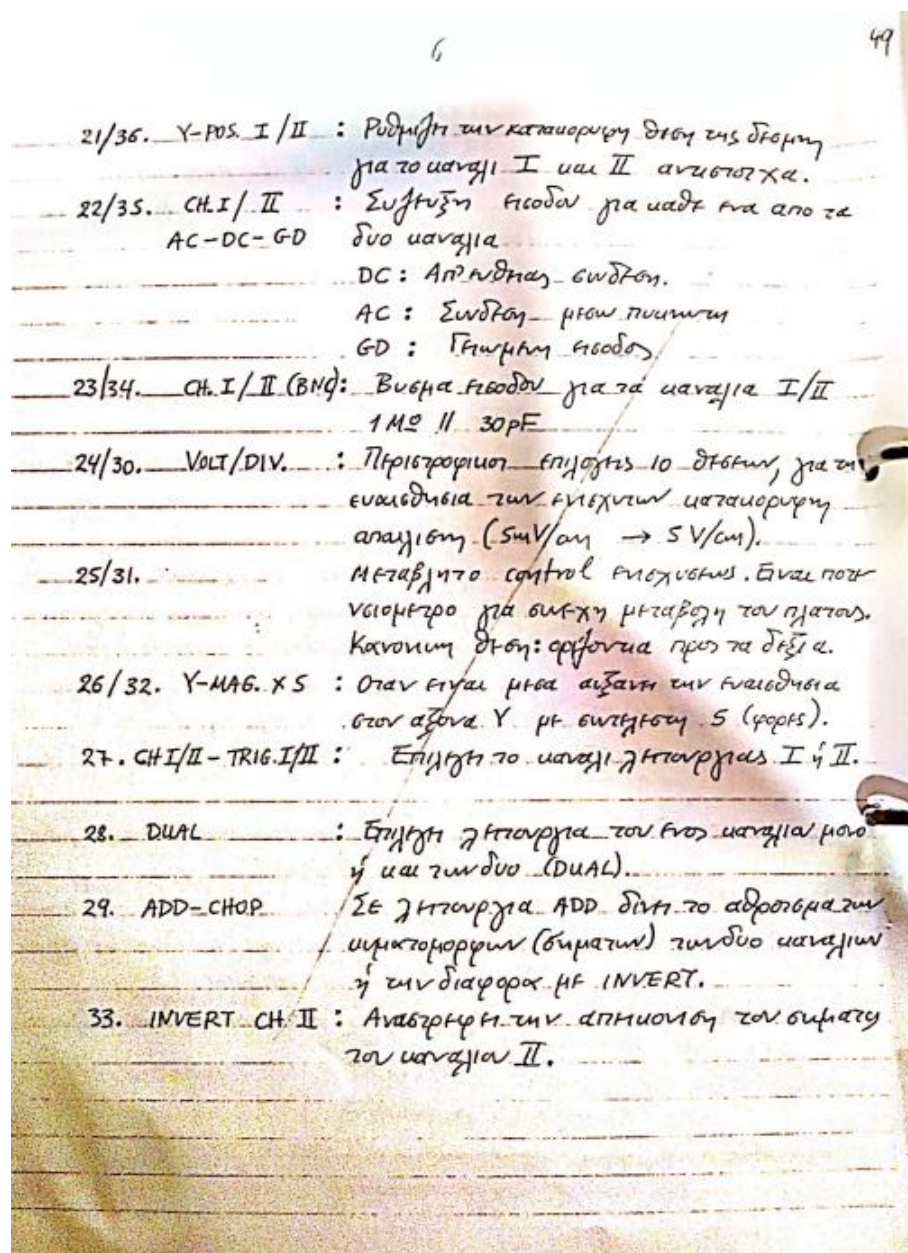 6
49
21/36. Y-POS. I/II : Ρυθμιζει την κατακορυφη θεση της δεσμης
για το καναλι I και II αντιστοιχα.
22/35. CH.I/II : Συζευξη εισοδου για καθε ενα απο τα
AC-DC-GD δυο καναλια
DC : Απ' ευθειας συνδεση.
AC : Συνδεση μεσω πυκνωτη
GD : Γειωμενη εισοδος
23/34. CH.I/II (BNC): Βυσμα εισοδου για τα καναλια I/II
1 MΩ // 30pF
24/30. VOLT/DIV. : Περιστροφικοι επιλογεις 10 θεσεων, για την
ευαισθησια των ενισχυτων κατακορυφη
απακλιση (5mV/cm → 5 V/cm).
25/31. Μεταβλητο control ενισχυσεως. Ειναι ποτε
νσιομετρο για συνεχη μεταβολη του πλατους.
Κανονικη θεση: οριζοντια προς τα δεξια.
26/32. Y-MAG. X5 : Οταν ειναι μεσα αυξανει την ευαισθησια
στον αξονα Y με συντελεστη 5 (φορες).
27. CHI/II-TRIG.I/II : Επιλεγει το καναλι λειτουργιας I ή II.
28. DUAL : Επιλεγει λειτουργια του ενος καναλιου μονο
ή και των δυο (DUAL).
29. ADD-CHOP Σε λειτουργια ADD δινει το αθροισμα των
κυματομορφων (σηματων) των δυο καναλιων
ή την διαφορα με INVERT.
33. INVERT CH II : Αναστρεφει την απεικονιση του σηματος
του καναλιου II.